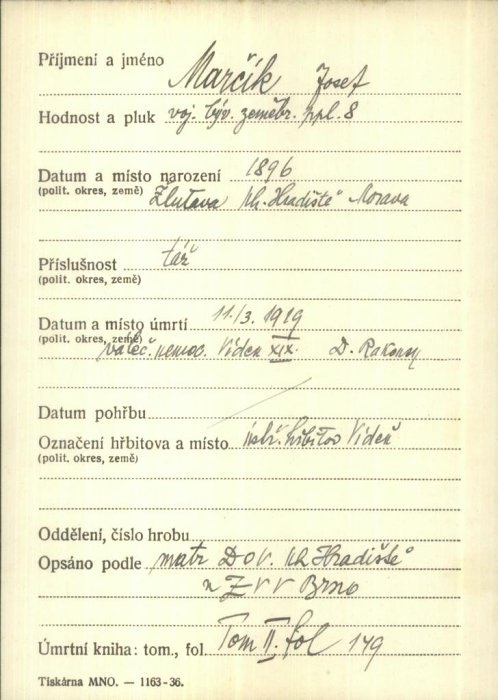 Příjmení a jméno Marčík Josef
Hodnost a pluk voj. býv. zeměbr. ppl. 8
Datum a místo narození 1896
(polit. okres, země) Žlutava Uh. Hradiště Morava
Příslušnost táž
(polit. okres, země)
Datum a místo úmrtí 11./3. 1919
(polit. okres, země) váleč. nemoc. Vídeň XIX.
Datum pohřbu
Označení hřbitova a místo ústř. hřbitov Vídeň
(polit. okres, země)
Oddělení, číslo hrobu
Opsáno podle matr DOV. Uh Hradiště
Z V V Brno
Úmrtní kniha: tom., fol. Tom II. fol 149
Tiskárna MNO. — 1163-36.